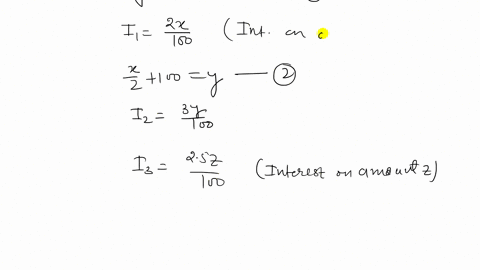 I₁ = 2x/100 (Int. on
x/2 + 100 = y — ②
I₂ = 3y/100
I₃ = 2.5z/100 (Interest on amount z)